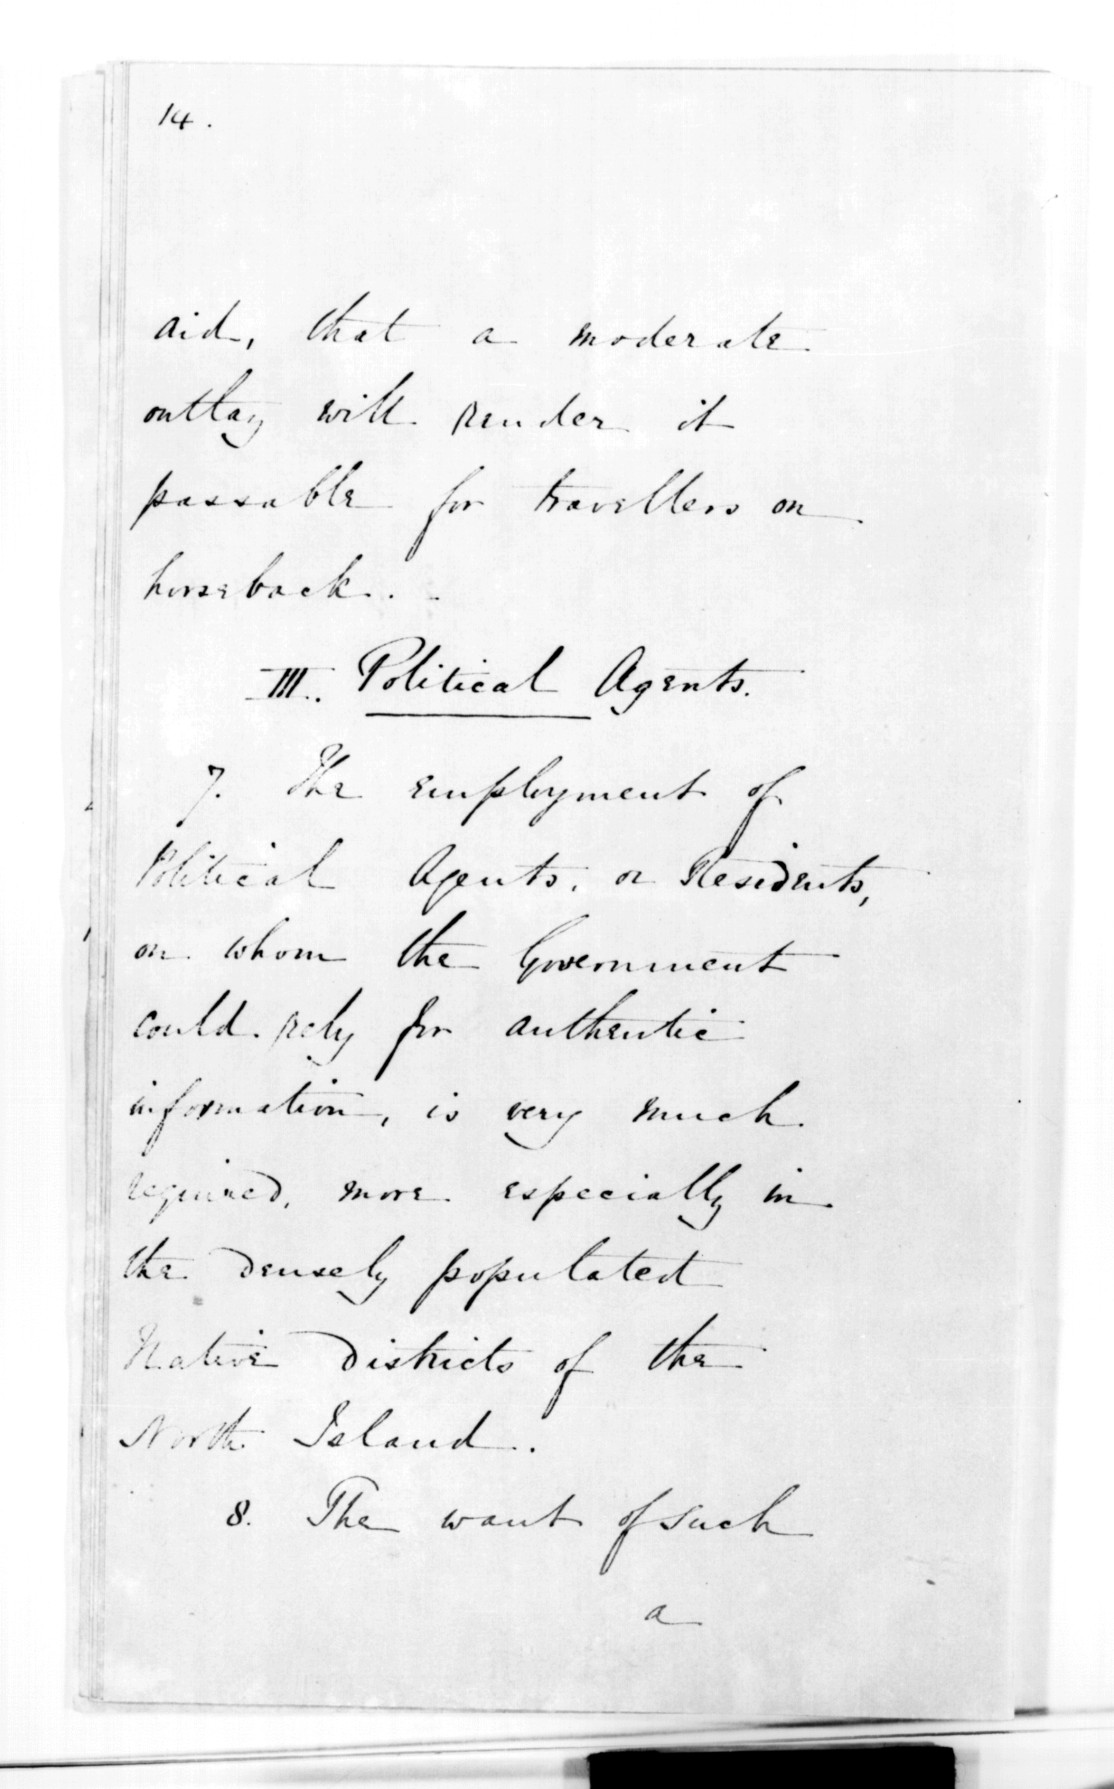 14.
aid, that a moderate
outlay will render it
passable for travellers on
horseback.
III. Political Agents.
7. The employment of
Political Agents, or Residents,
on whom the Government
could rely for authentic
information, is very much
required, more especially in
the densely populated
Native Districts of the
North Island.
8. The want of such
a